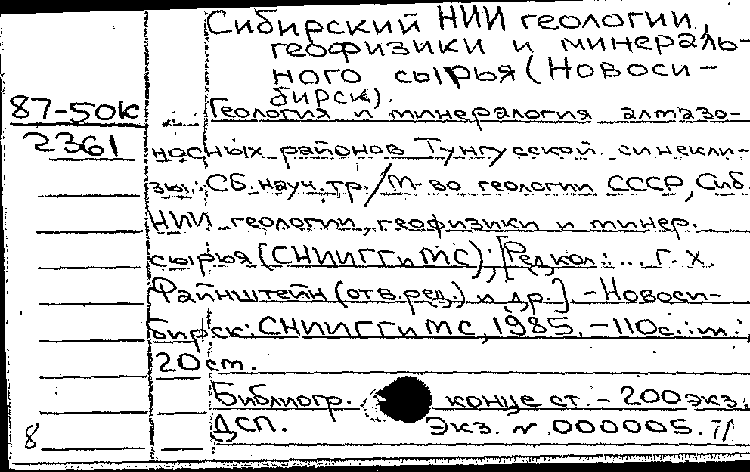 Сибирский НИИ геологии,
геофизики и минераль-
ного сырья (Новоси-
бирск).
87-50к Геология и минералогия алмазо-
2361 носных районов Тунгусской синекли-
зы: Сб. науч. тр. / М-во геологии СССР, Сиб.
НИИ геологии, геофизики и минер.
сырья (СНИИГГиМС); [Редкол.: ... Г. Х.
Файнштейн (отв. ред.) и др.] - Новоси-
бирск: СНИИГГиМС, 1985. - 110 с.: ил.;
20 см.
Библиогр. конце ст. - 200 экз.
ДСП. Экз. № 000005.
8